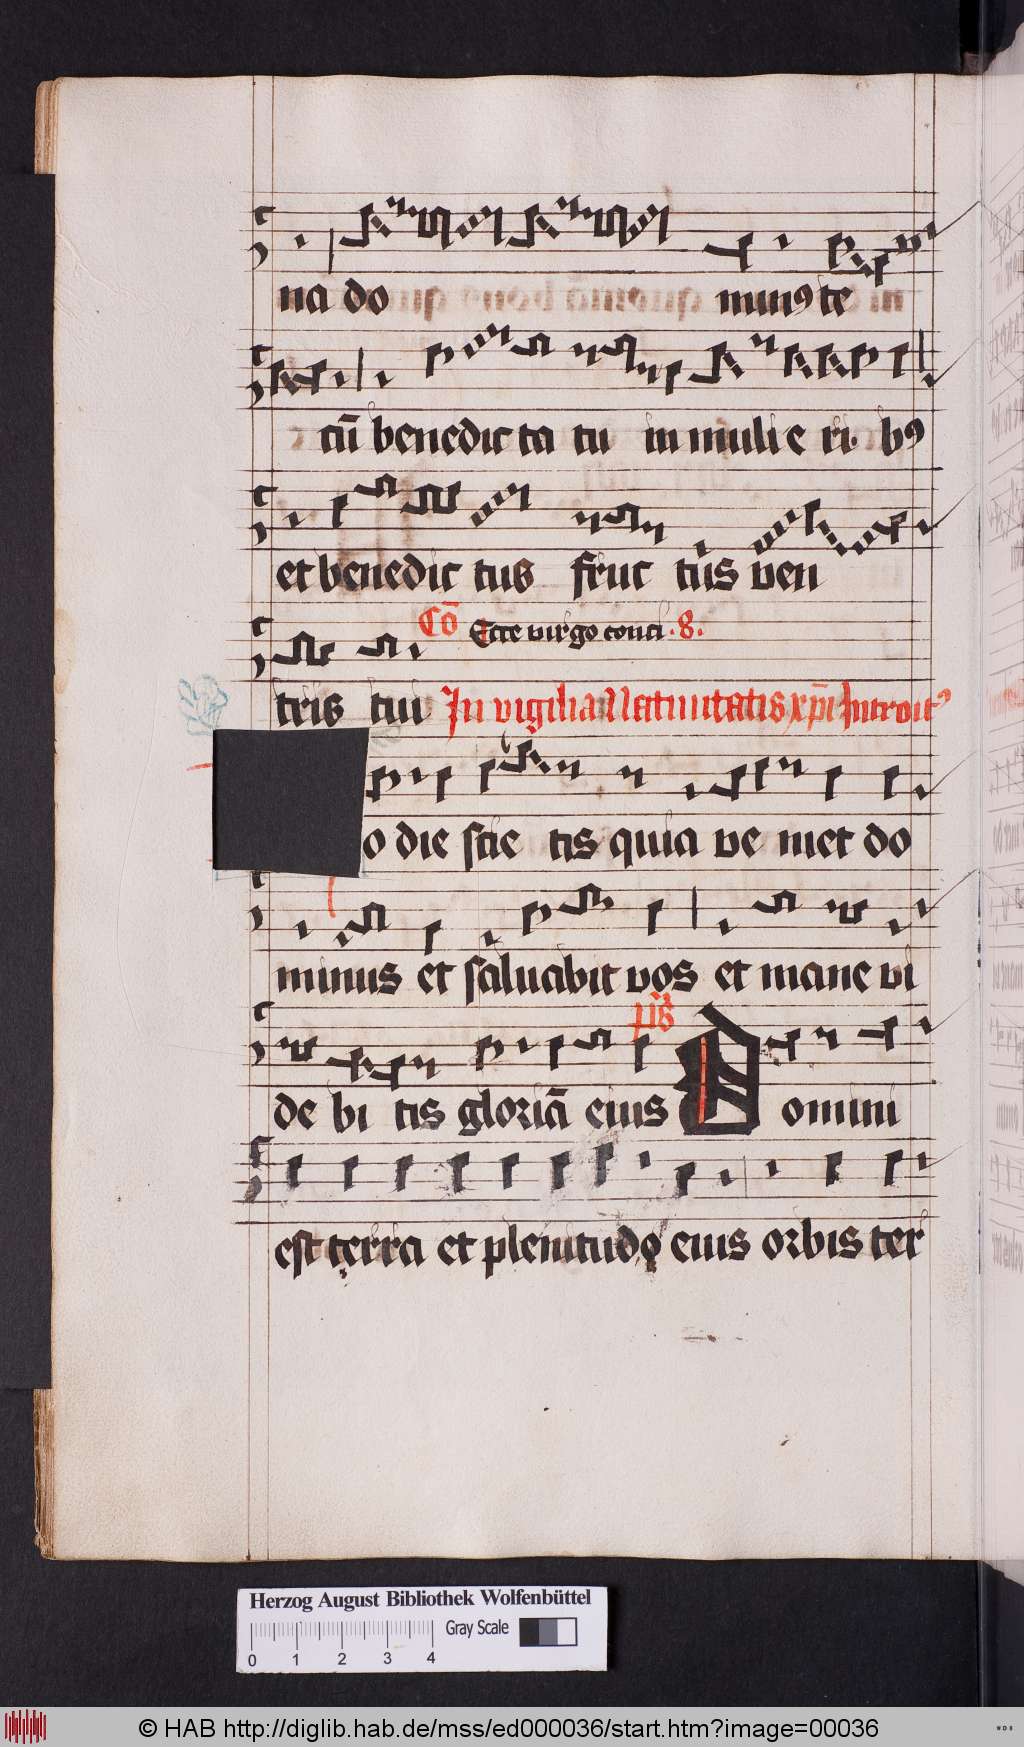 na do minꝰ te
cū benedic ta tu in muli e ri bꝰ
et benedic tus fruc tus ven
Cō Ecce virgo conci .8.
tris tui In vigilia Natiuitatis xp̄i Introitꝰ
o die scie tis quia ve niet do
minus et saluabit vos et mane vi
p̄s
de bi tis gloriā eius Domini
est terra et plenitudo eius orbis ter
Herzog August Bibliothek Wolfenbüttel
Gray Scale
0 1 2 3 4
© HAB http://diglib.hab.de/mss/ed000036/start.htm?image=00036